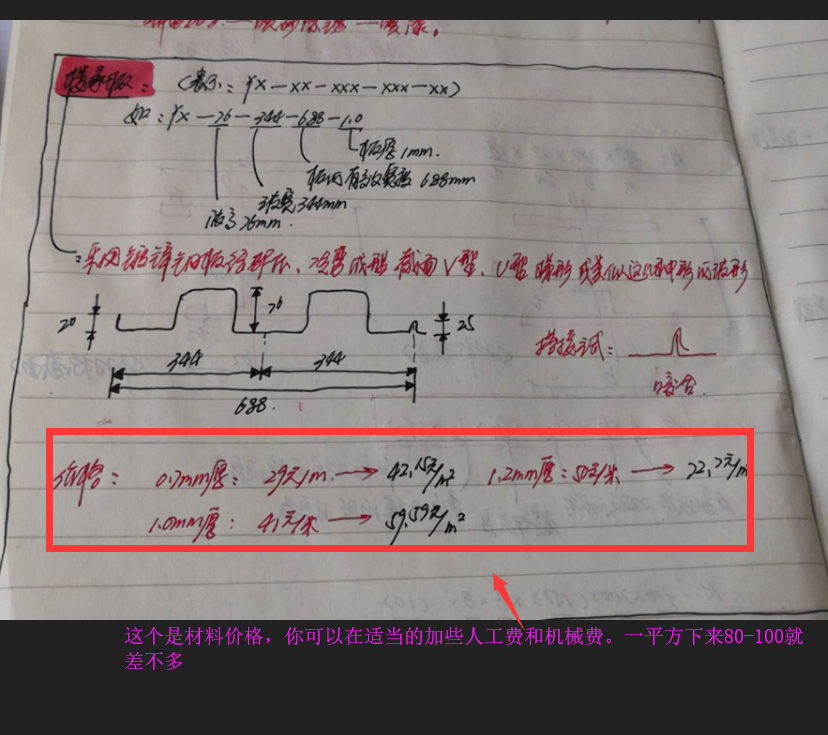 楼承板：（表示：YX—XX—XXX—XXX—XX）
如：YX—76—344—688—1.0
板厚1mm.
板的有效宽度688mm
波宽344mm
波高76mm.
采用镀锌钢板经辊压、冷弯成型 截面V型、U型 梯形 或类似这几种形的波形
20
76
25
344
344
688.
搭接式：
咬合.
价格：
0.7mm厚：29元/m.→42.15元/m²
1.2mm厚：50元/米→72.7元/m
1.0mm厚：41元/米→59.59元/m²
这个是材料价格，你可以在适当的加些人工费和机械费。一平方下来80-100就
差不多